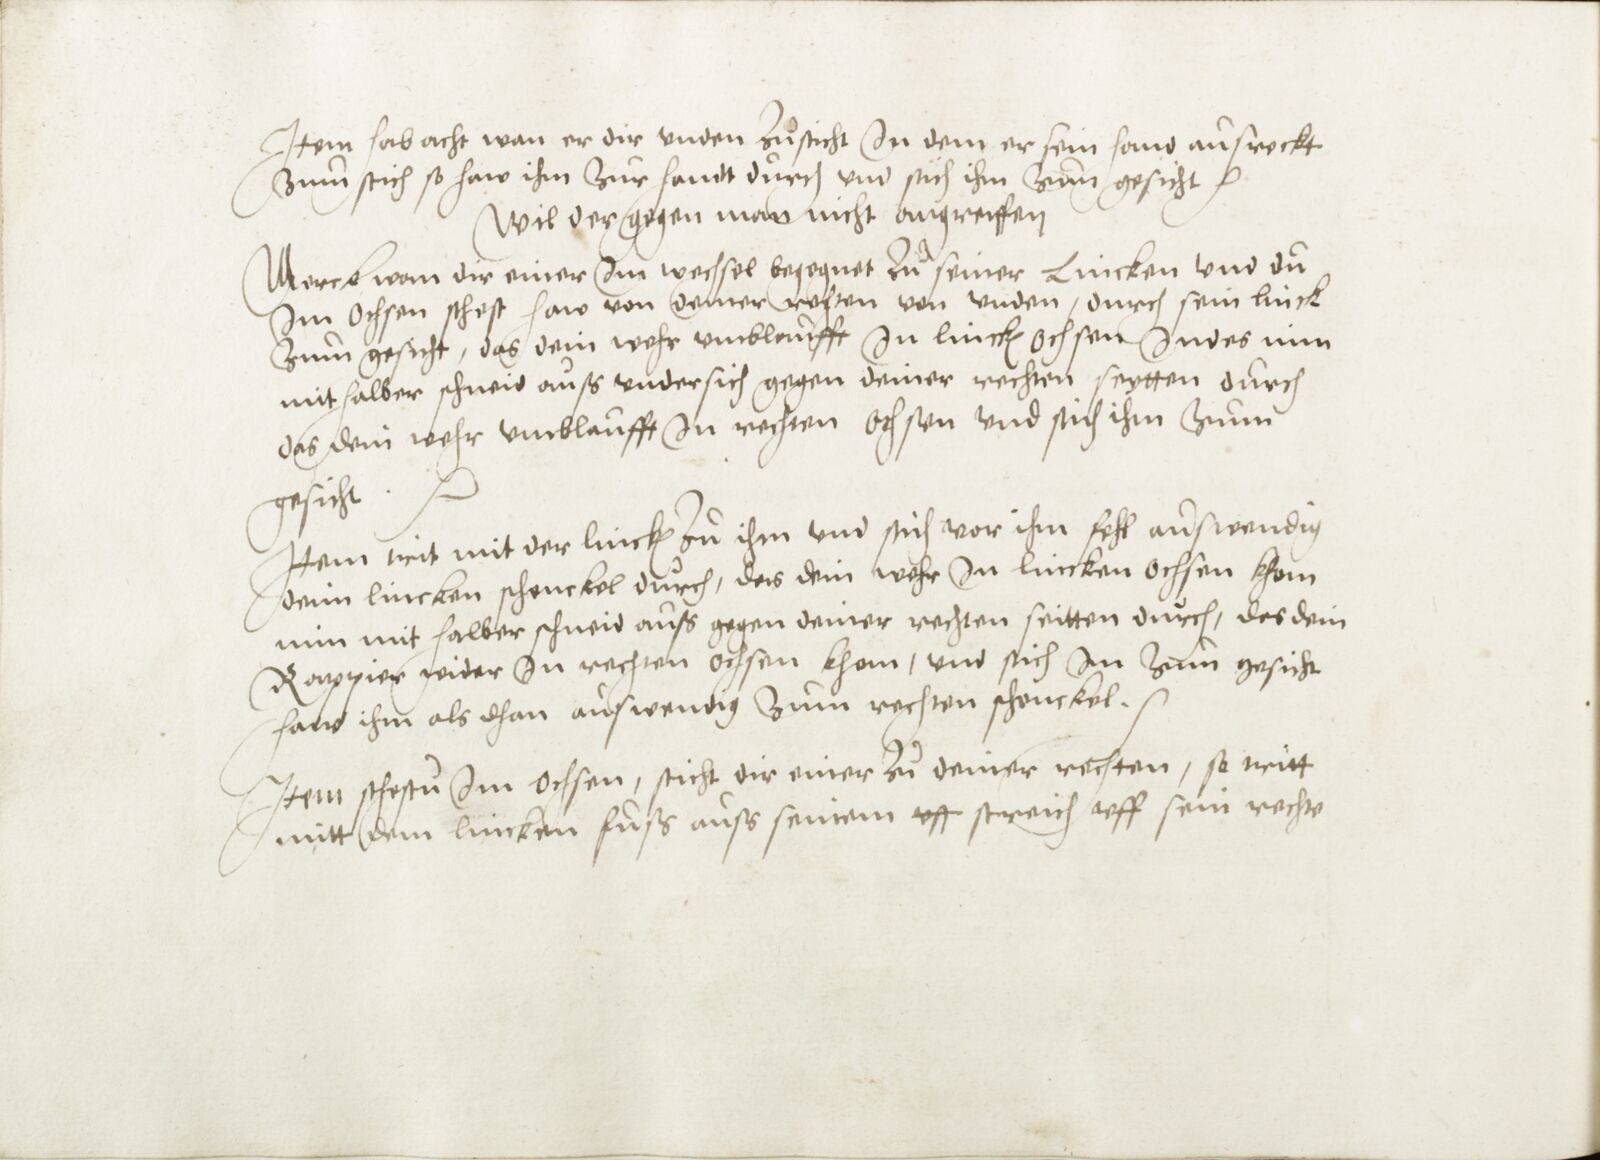 Item hab acht wan er dir unden zusticht In dem er sein hand ausreckt
zum stich so haw ihm zur handt durch vnd stich ihm zum gesicht
Wil der gegen man nicht angreiffen
Merck wan dir einer Im wechsel begegnet zu seiner Lincken vnd du
Im Ochsen sthest haw von deiner rechten von vnden, durch sein linck
zum gesicht, das dein wehr vmblaufft In linck ochsen Indes nim
mit halber schneid auss vndersich gegen deiner rechten seytten durch
das dein wehr vmblaufft In rechten Ochsen vnd stich ihm zum
gesicht.
Item trit mit der linck zu ihm vnd stich vor ihm fehl auswendig
deim lincken schenckel durch, das dein wehr In lincken ochsen khom
nim mit halber schneid auss gegen deiner rechten seitten durch, das dein
Rappier wider In rechten ochsen khom, vnd stich Im zum gesicht
haw ihm als dhan auswendig zum rechten schenckel.
Item sthestu Im Ochsen, sticht dir einer zu deiner rechten, so tritt
mitt dem lincken fuss auss seinem streich vff sein rechte